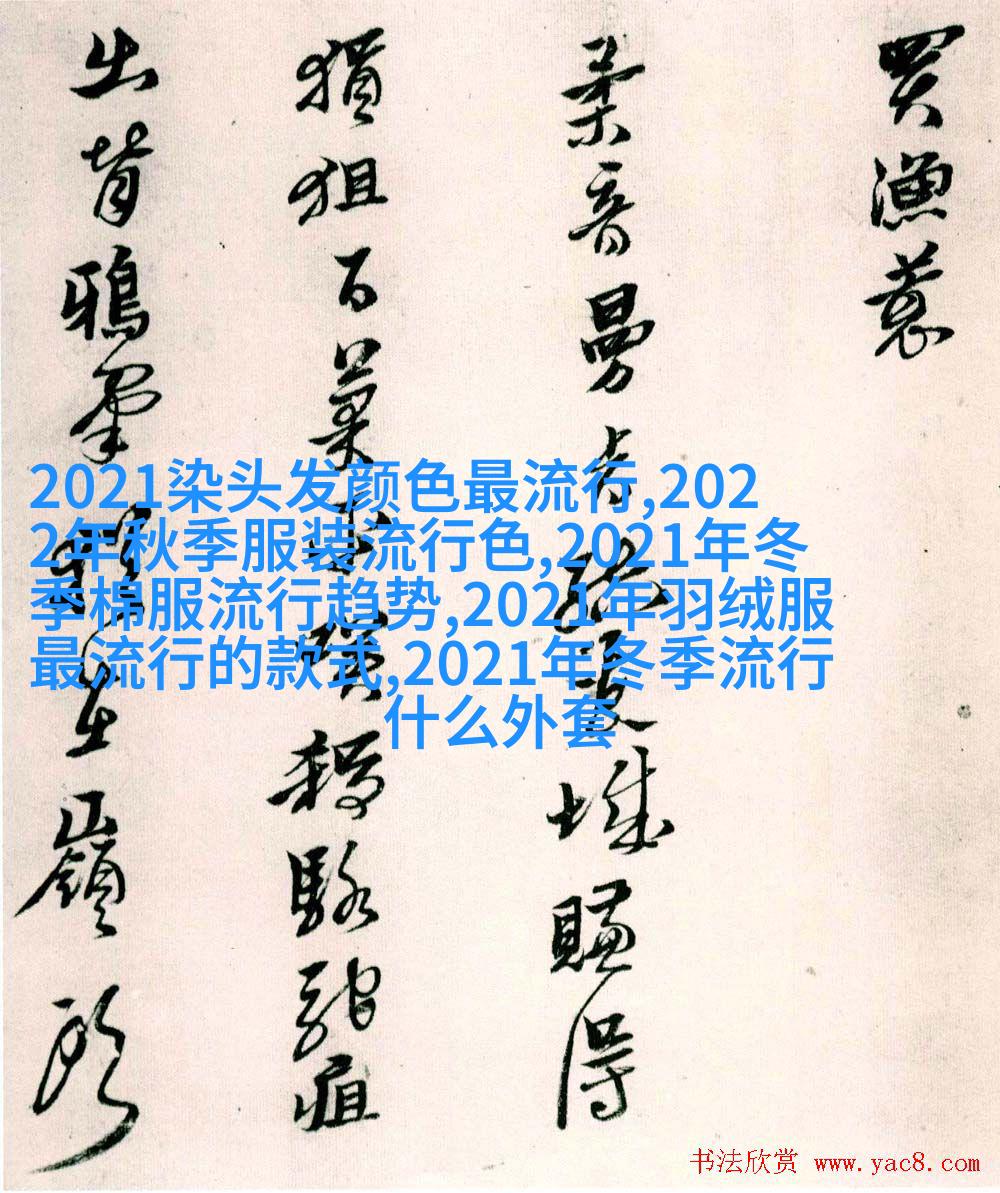 買漁蓑
柔音曼城賺得
狙百駱駝疽
出背鴉嶺
2021染头发颜色最流行,202
2年秋季服装流行色,2021年冬
季棉服流行趋势,2021年羽绒服
最流行的款式,2021年冬季流行
什么外套
书法欣赏 www.yac8.com